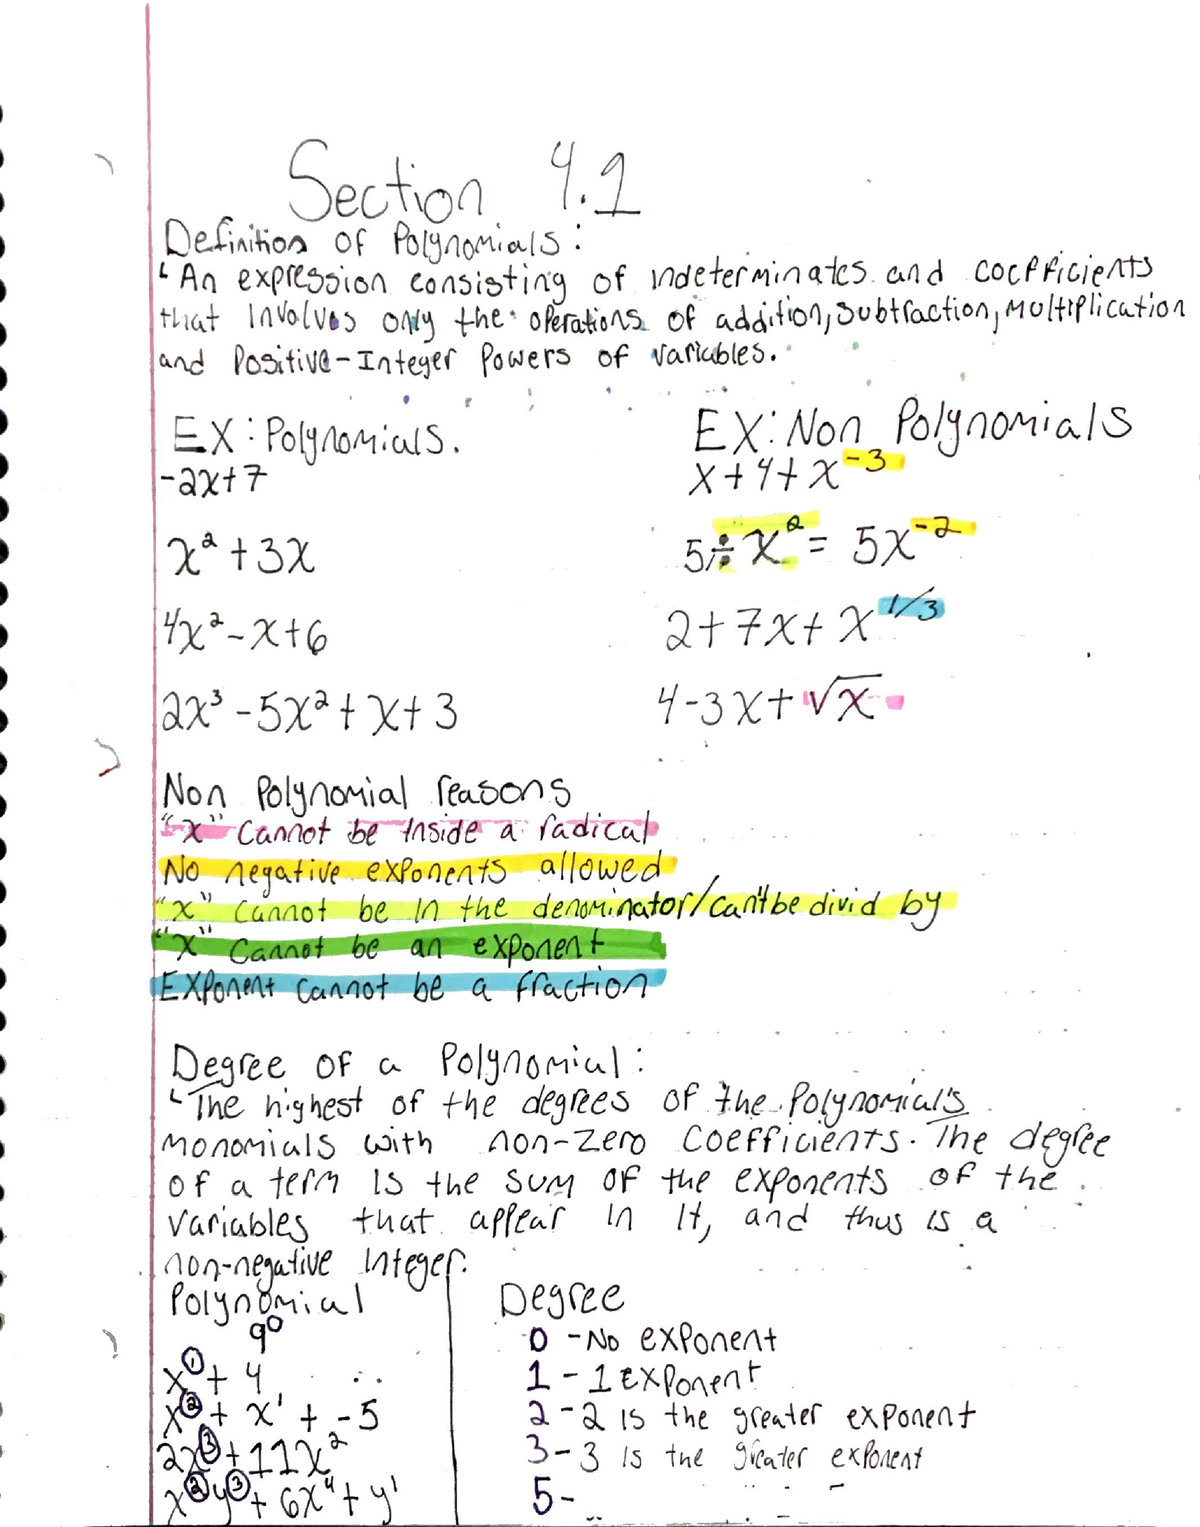 Section 4.1
Definition of Polynomials:
An expression consisting of indeterminates and coefficients
that involves only the operations of addition, subtraction, Multiplication
and Positive-Integer Powers of variables.
EX: Polynomials.
-2x+7
x²+3x
4x²-x+6
2x³-5x²+x+3
EX: Non Polynomials
x+4+x⁻³
5÷x²= 5x⁻²
2+7x+x^1/3
4-3x+√x
Non Polynomial reasons
"x" Cannot be inside a radical
No negative exponents allowed
"x" cannot be in the denominator/can't be divid by
"x" Cannot be an exponent
Exponent cannot be a fraction
Degree of a Polynomial:
The highest of the degrees of the Polynomial's
monomials with non-zero coefficients. The degree
of a term is the sum of the exponents of the
variables that appear in it, and thus is a
non-negative integer.
Polynomial
9⁰
x¹+4
x²+x¹+-5
2x³+11x²
x²y³+6x⁴+y¹
Degree
0 - No exponent
1 - 1 Exponent
2 - 2 is the greater exponent
3 - 3 is the greater exponent
5 -